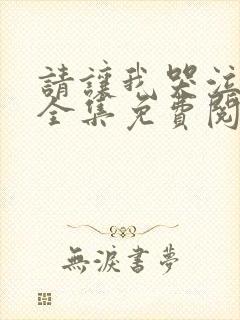 請讓我哭泣
全集免費閱
無淚書夢